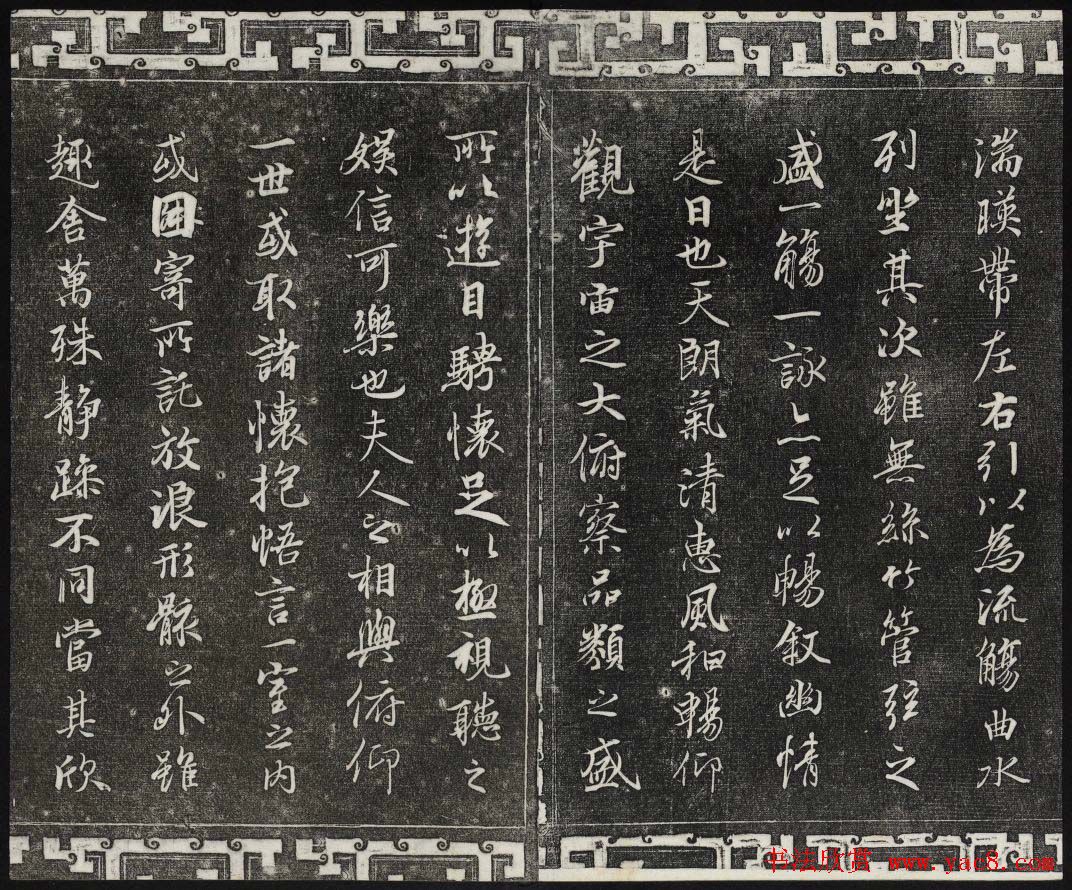 湍暎帶左右引以為流觴曲水
列坐其次雖無絲竹管弦之
盛一觴一詠亦足以暢敘幽情
是日也天朗氣清惠風和暢仰
觀宇宙之大俯察品類之盛
所以遊目騁懷足以極視聽之
娛信可樂也夫人之相與俯仰
一世或取諸懷抱悟言一室之內
或因寄所託放浪形骸之外雖
趣舍萬殊靜躁不同當其欣
书法欣赏 www.yac8.com